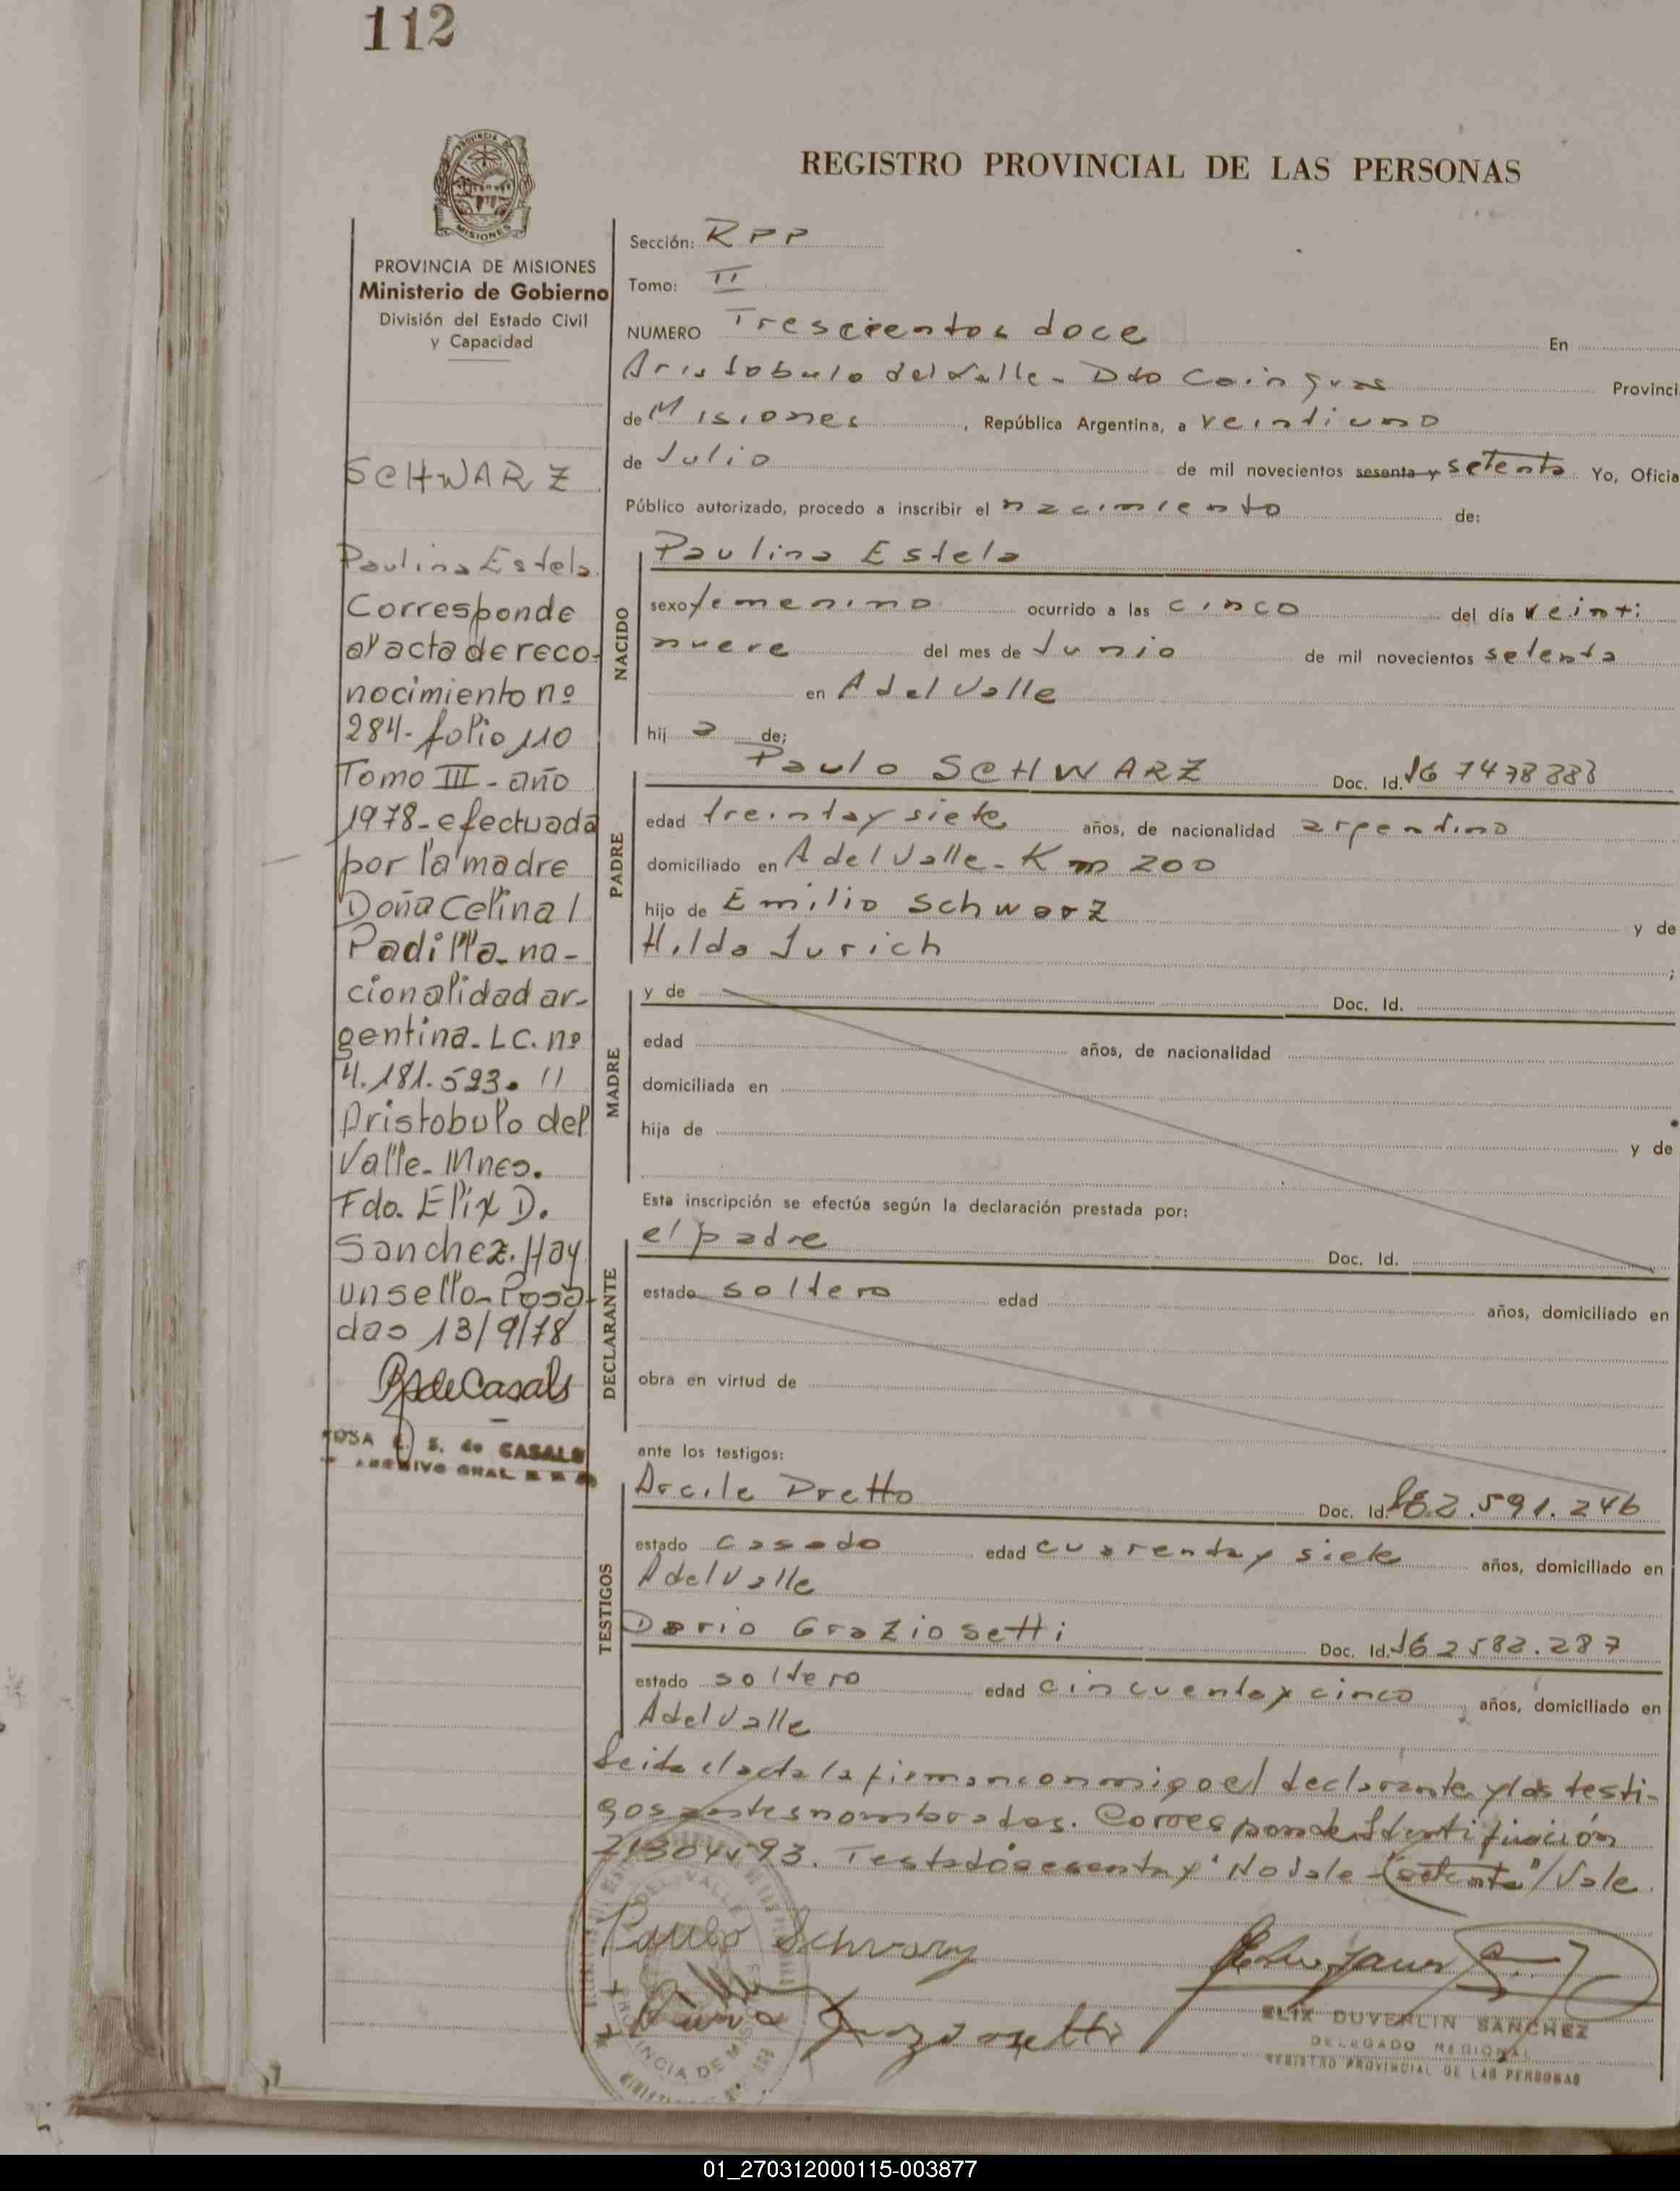 112
REGISTRO PROVINCIAL DE LAS PERSONAS
MISIONES
PROVINCIA DE MISIONES
Ministerio de Gobierno
División del Estado Civil
y Capacidad
SCHWARZ
Paulina Estela
Corresponde
al acta de reco-
nocimiento nº
284- folio 110
Tomo III - año
1978- efectuada
por la madre
Doña Celina I
Padilla- na-
cionalidad ar-
gentina- LC. nº
4.181.593. 11
Aristobulo del
Valle- Mnes.
Fdo. Elix D.
Sanchez. Hay
un sello- Posa-
das 13/9/78
ROSA S. de CASALS
ARCHIVO GRAL
Sección: RPP
Tomo: II
NUMERO Trescientos doce En
Aristobulo del Valle- Dto Cainguas Provinci
de Misiones , República Argentina, a veintiuno
de Julio de mil novecientos sesenta y setenta Yo, Oficia
Público autorizado, procedo a inscribir el nacimiento de:
NACIDO
Paulina Estela
sexo femenino ocurrido a las cinco del día veinti
nueve del mes de Junio de mil novecientos setenta
en A del Valle
hij a de;
PADRE
Paulo SCHWARZ Doc. Id. 7478888
edad treinta y siete años, de nacionalidad argentino
domiciliado en A del Valle- Km 200
hijo de Emilio Schwarz y de
Hilda Jurich ;
MADRE
y de Doc. Id.
edad años, de nacionalidad
domiciliada en
hija de y de
Esta inscripción se efectúa según la declaración prestada por:
DECLARANTE
el padre Doc. Id.
estado soltero edad años, domiciliado en
obra en virtud de
ante los testigos:
TESTIGOS
Arcile Dretto Doc. Id. 2.591.246
estado casado edad cuarenta y siete años, domiciliado en
A del Valle
Dario Graziosetti Doc. Id. 2582.287
estado soltero edad cincuenta y cinco años, domiciliado en
A del Valle
Leida el acta la firman conmigo el declarante y los testi-
gos antes nombrados. Corresponde Identificación
21304593. Testado "sesenta y" No Vale - "setenta"/Vale.
Paulo Schwarz
Graziosetti
ELIX DUVERLIN SANCHEZ
DELEGADO REGIONAL
REGISTRO PROVINCIAL DE LAS PERSONAS
01_270312000115-003877